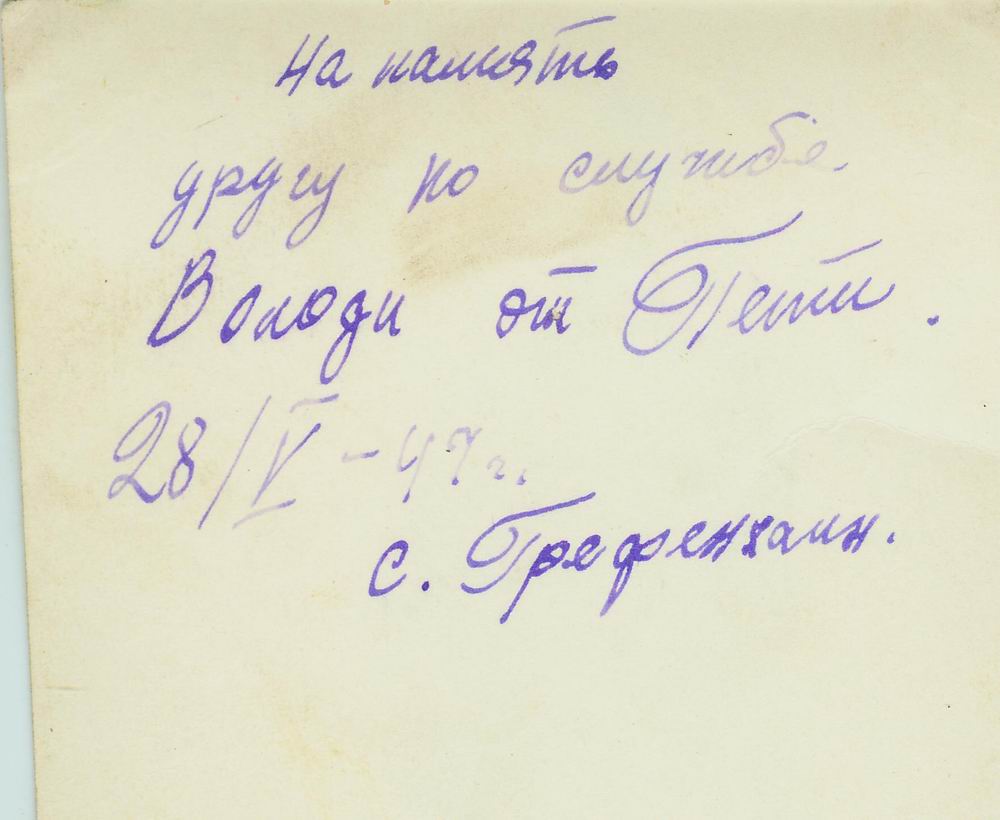 На память
другу по службе
Володи от Пети.
28/V – 47 г.
с. Грефенхаин.